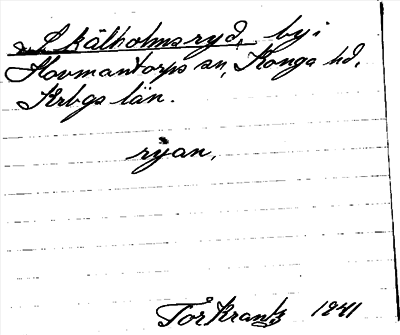 Skälholmsryd, by i
Hovmantorps sn, Konga hd,
Krbgs län.
ryan,
Tor Krantz 1941